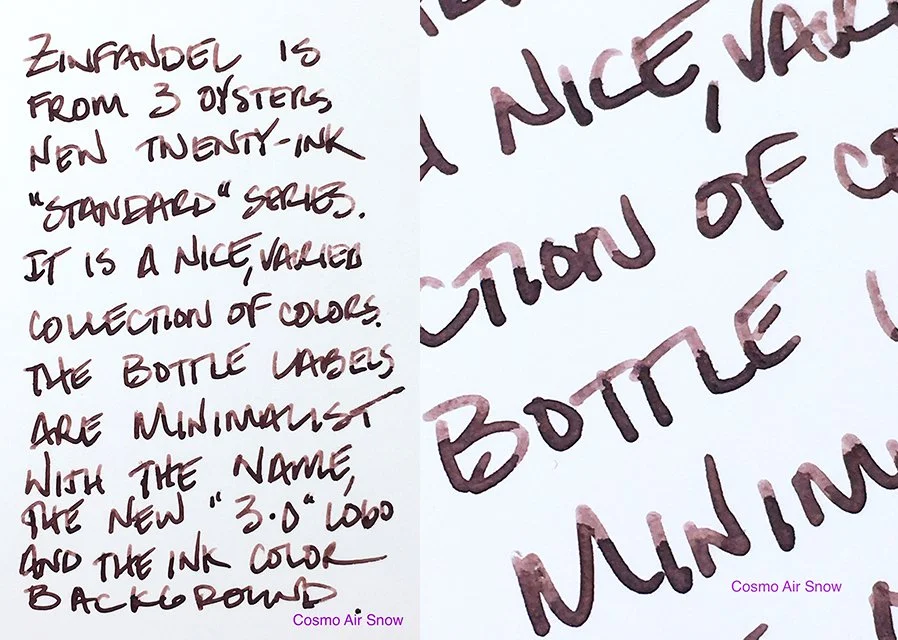 ZINFANDEL IS
FROM 3 OYSTERS
NEW TWENTY-INK
"STANDARD" SERIES.
IT IS A NICE, VARIED
COLLECTION OF COLORS.
THE BOTTLE LABELS
ARE MINIMALIST
WITH THE NAME,
THE NEW "3.0" LOGO
AND THE INK COLOR
BACKGROUND.
Cosmo Air Snow
A NICE, VARI
CTION OF CO
BOTTLE L
MINIM
Cosmo Air Snow